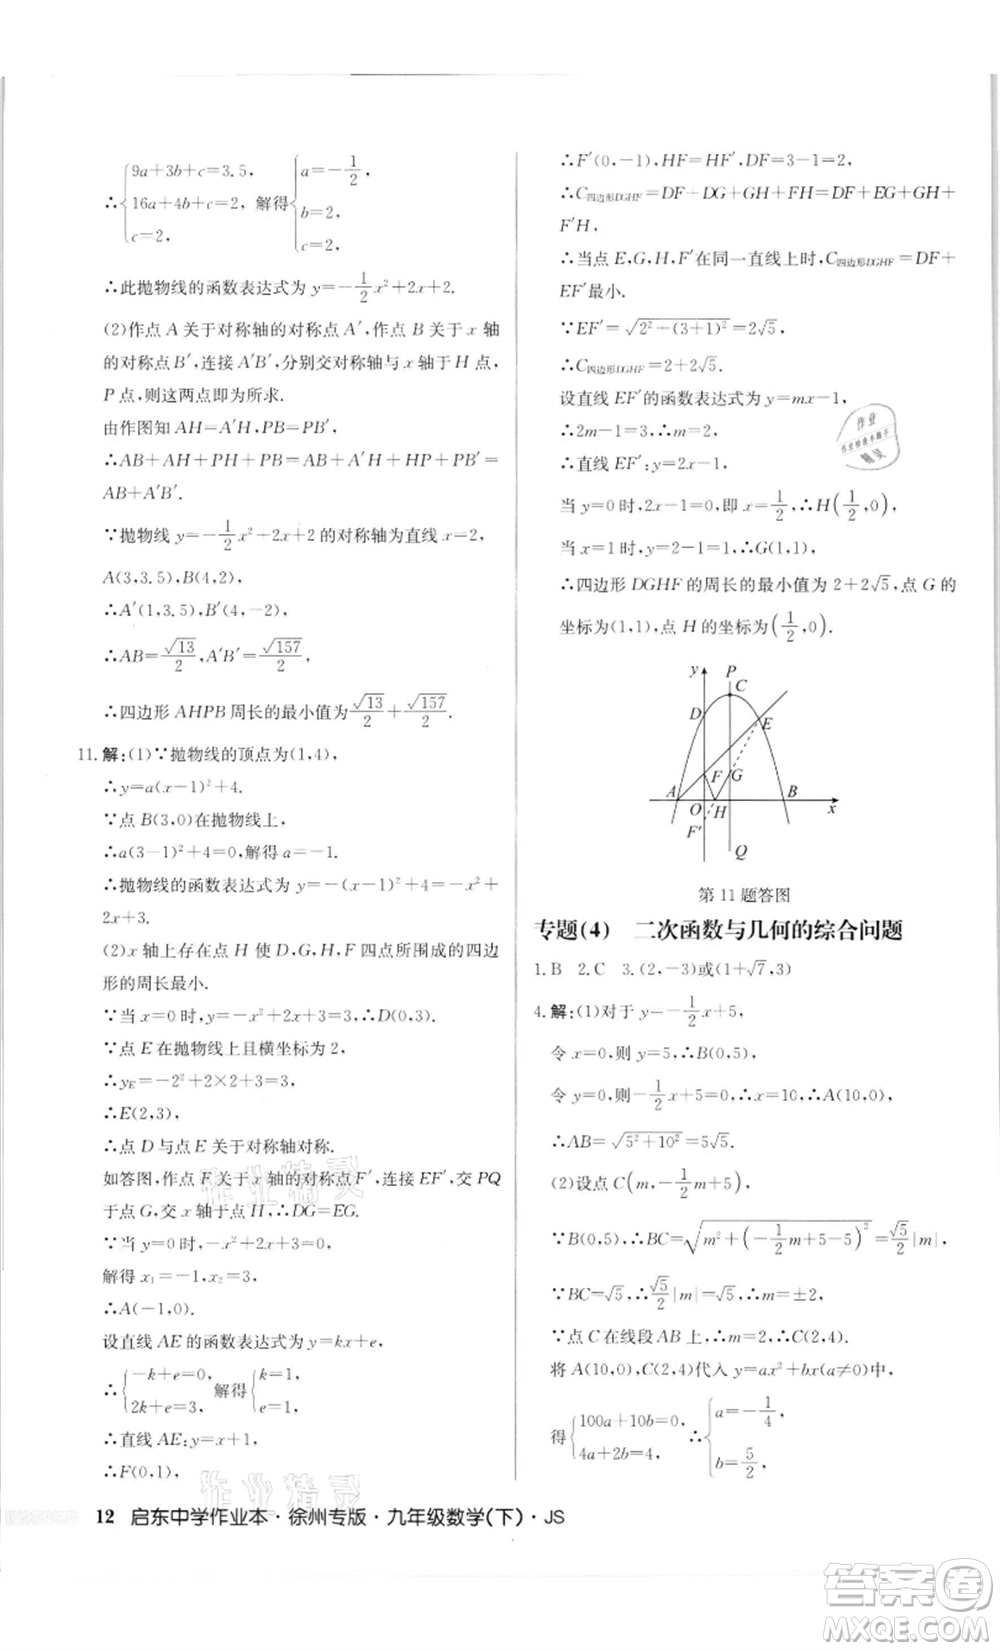 ∴{9a+3b+c=3.5, 16a+4b+c=2, c=2, 解得{a=-1/2, b=2, c=2.
∴此抛物线的函数表达式为 y=-1/2x²+2x+2.
(2)作点 A 关于对称轴的对称点 A′,作点 B 关于 x 轴
的对称点B′,连接A′B′,分别交对称轴与x轴于H点,
P点,则这两点即为所求.
由作图知 AH=A′H,PB=PB′,
∴AB+AH+PH+PB=AB+A′H+HP+PB′=
AB+A′B′.
∵抛物线 y=-1/2x²+2x+2 的对称轴为直线x=2,
A(3,3.5),B(4,2),
∴A′(1,3.5),B′(4,-2),
∴AB=√13/2,A′B′=√157/2,
∴四边形 AHPB 周长的最小值为√13/2+√157/2.
11.解:(1)∵抛物线的顶点为(1,4),
∴y=a(x-1)²+4.
∵点 B(3,0)在抛物线上,
∴a(3-1)²+4=0,解得 a=-1.
∴抛物线的函数表达式为 y=-(x-1)²+4=-x²+
2x+3.
(2)x 轴上存在点 H 使 D,G,H,F 四点所围成的四边
形的周长最小.
∵当 x=0 时,y=-x²+2x+3=3,∴D(0,3).
∵点 E 在抛物线上且横坐标为 2,
∴yE=-2²+2×2+3=3,
∴E(2,3),
∴点 D 与点 E 关于对称轴对称.
如答图,作点 F 关于 x 轴的对称点F′,连接EF′,交 PQ
于点 G,交 x 轴于点 H,∴DG=EG.
∵当 y=0 时,-x²+2x+3=0,
解得 x₁=-1,x₂=3,
∴A(-1,0).
设直线 AE 的函数表达式为 y=kx+e,
∴{-k+e=0, 2k+e=3, 解得{k=1, e=1.
∴直线 AE:y=x+1,
∴F(0,1),
∴F′(0,-1),HF=HF′,DF=3-1=2,
∴C四边形DGHF=DF+DG+GH+FH=DF+EG+GH+
F′H,
∴当点 E,G,H,F′在同一直线上时,C四边形DGHF=DF+
EF′最小.
∵EF′=√2²+(3+1)²=2√5,
∴C四边形DGHF=2+2√5.
设直线 EF′的函数表达式为 y=mx-1,
∴2m-1=3,解得 m=2,
∴直线 EF′:y=2x-1.
当 y=0 时,2x-1=0,即 x=1/2,∴H(1/2,0),
当 x=1 时,y=2-1=1,∴G(1,1),
∴四边形 DGHF 的周长的最小值为 2+2√5,点 G 的
坐标为(1,1),点 H 的坐标为(1/2,0).
y P
C
D E
F G
A O H B x
F′
Q
第 11 题答图
专题(4) 二次函数与几何的综合问题
1.B 2.C 3.(2,-3)或(1+√7,3)
4.解:(1)对于 y=-1/2x+5,
令 x=0,则 y=5,∴B(0,5),
令 y=0,则-1/2x+5=0,∴x=10,∴A(10,0),
∴AB=√5²+10²=5√5.
(2)设点 C(m,-1/2m+5),
∵B(0,5),∴BC=√m²+(-1/2m+5-5)²=√5/2|m|,
∵BC=√5,∴√5/2|m|=√5,∴m=±2,
∵点 C 在线段 AB 上,∴m=2,∴C(2,4).
将 A(10,0),C(2,4)代入 y=ax²+bx(a≠0)中,
得{100a+10b=0, 4a+2b=4, ∴{a=-1/4, b=5/2.
12 启东中学作业本·徐州专版·九年级数学(下)·JS
作业精灵
作业精灵
答案卷
MXQE.COM